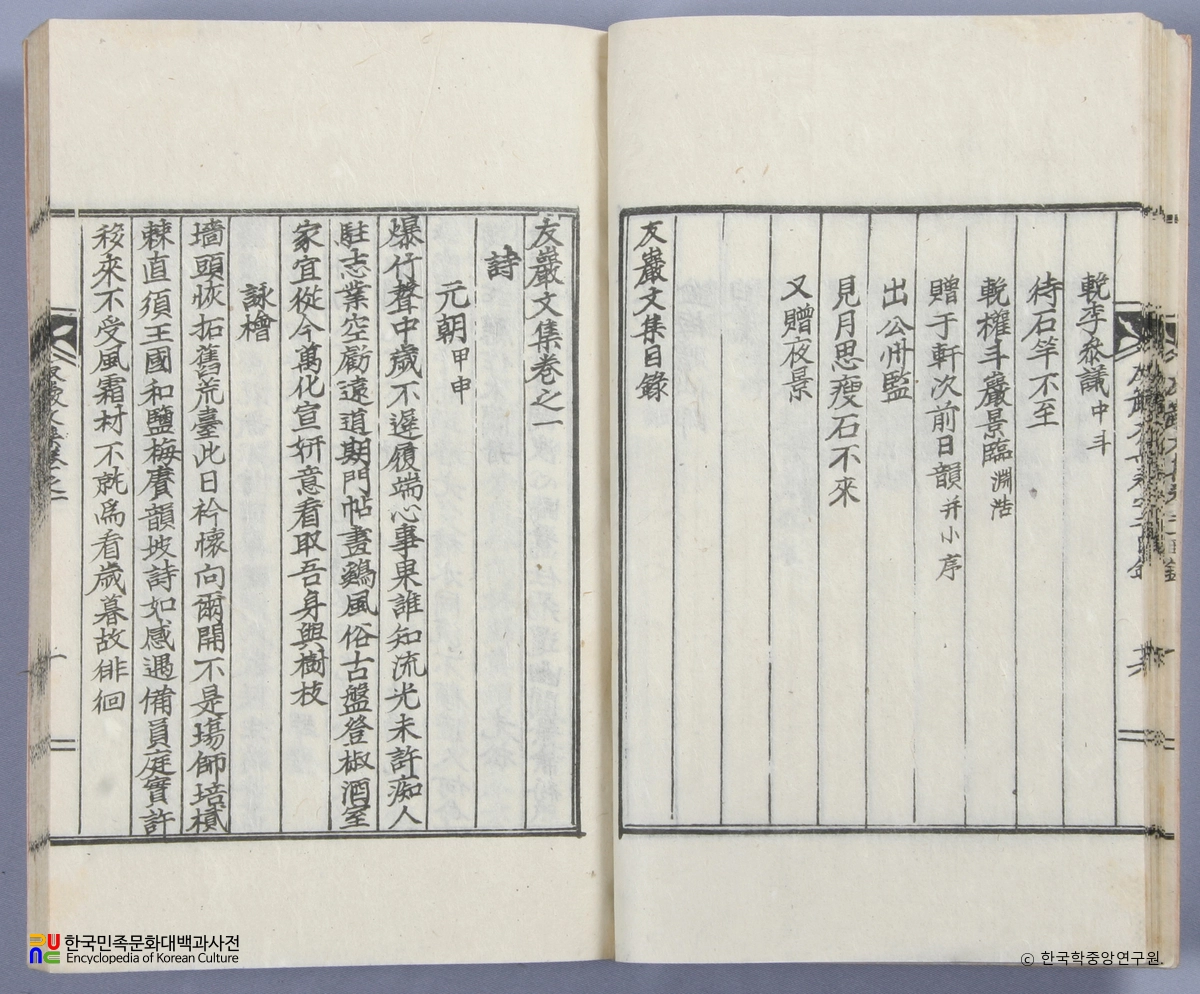 輓李參議中斗
待石竿不至
輓權斗巖景臨淵浩
贈于軒次前日韻并小序
出公州監
見月思瘦石不來
又贈夜景
友巖文集目錄
友巖文集卷之一
詩
元朝甲申
爆竹聲中歲不遲履端心事果誰知流光未許痴人
駐志業空虧遠道期門帖畫鷄風俗古盤登椒酒室
家宜從今萬化宣姸意看取吾身與樹枝
詠檜
墻頭恢拓舊荒臺此日衿懷向爾開不是場師培檟
棘直須王國和鹽梅賡韻坡詩如感遇備員庭實許
移來不受風霜材不就爲看歲暮故徘徊
友巖文集卷之一
한국민족문화대백과사전
Encyclopedia of Korean Culture
© 한국학중앙연구원